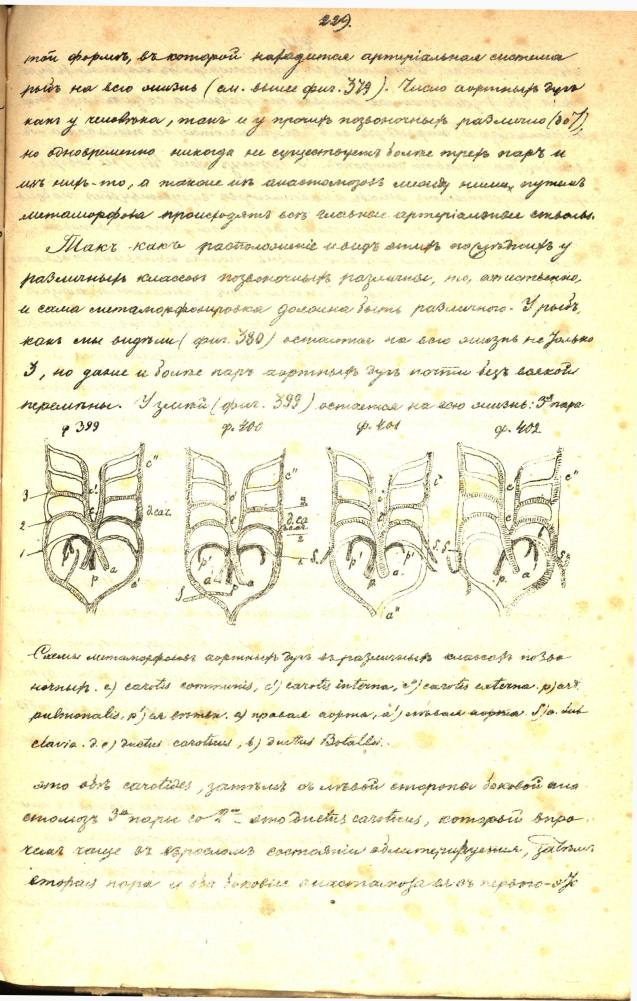 229.
той формѣ, въ которой находится артеріальная система
рыбъ на всю жизнь (см. выше фиг. 379). Число аортныхъ дугъ
какъ у человѣка, такъ и у прочихъ позвоночныхъ различно (до 7),
но одновременно никогда не существуетъ болѣе трехъ паръ и
изъ нихъ-то, а также изъ анастомозовъ между ними, путемъ
метаморфоза происходятъ всѣ главные артеріальные стволы.
Такъ какъ расположеніе и видъ этихъ послѣднихъ у
различныхъ классовъ позвоночныхъ различны, то, естественно,
и сама метаморфизировка должна быть различного. У рыбъ,
какъ мы видѣли (фиг. 380) остается на всю жизнь не только
3, но даже и болѣе паръ аортныхъ дугъ почти безъ всякой
перемѣны. У змѣй (фиг. 399) остается на всю жизнь: 3я пара
ф 399 ф. 400 ф. 401 ф. 402
Схемы метаморфозовъ аортныхъ дугъ въ различныхъ классахъ позво
ночныхъ. c) carotis communis, c') carotis interna, c'') carotis externa. p) art.
pulmonalis, p') ея вѣтви. a) правая аорта, a') лѣвая аорта. S) a. sub
clavia. d.c) ductus caroticus, b) ductus Botalli.
это обѣ carotides, затѣмъ съ лѣвой стороны боковой ана
стомозъ 3й пары со 2ой это ductus caroticus, который впро
чемъ чаще въ взросломъ состояніи облитерируется, затѣмъ
вторая пара и оба боковые анастомоза ея съ первою